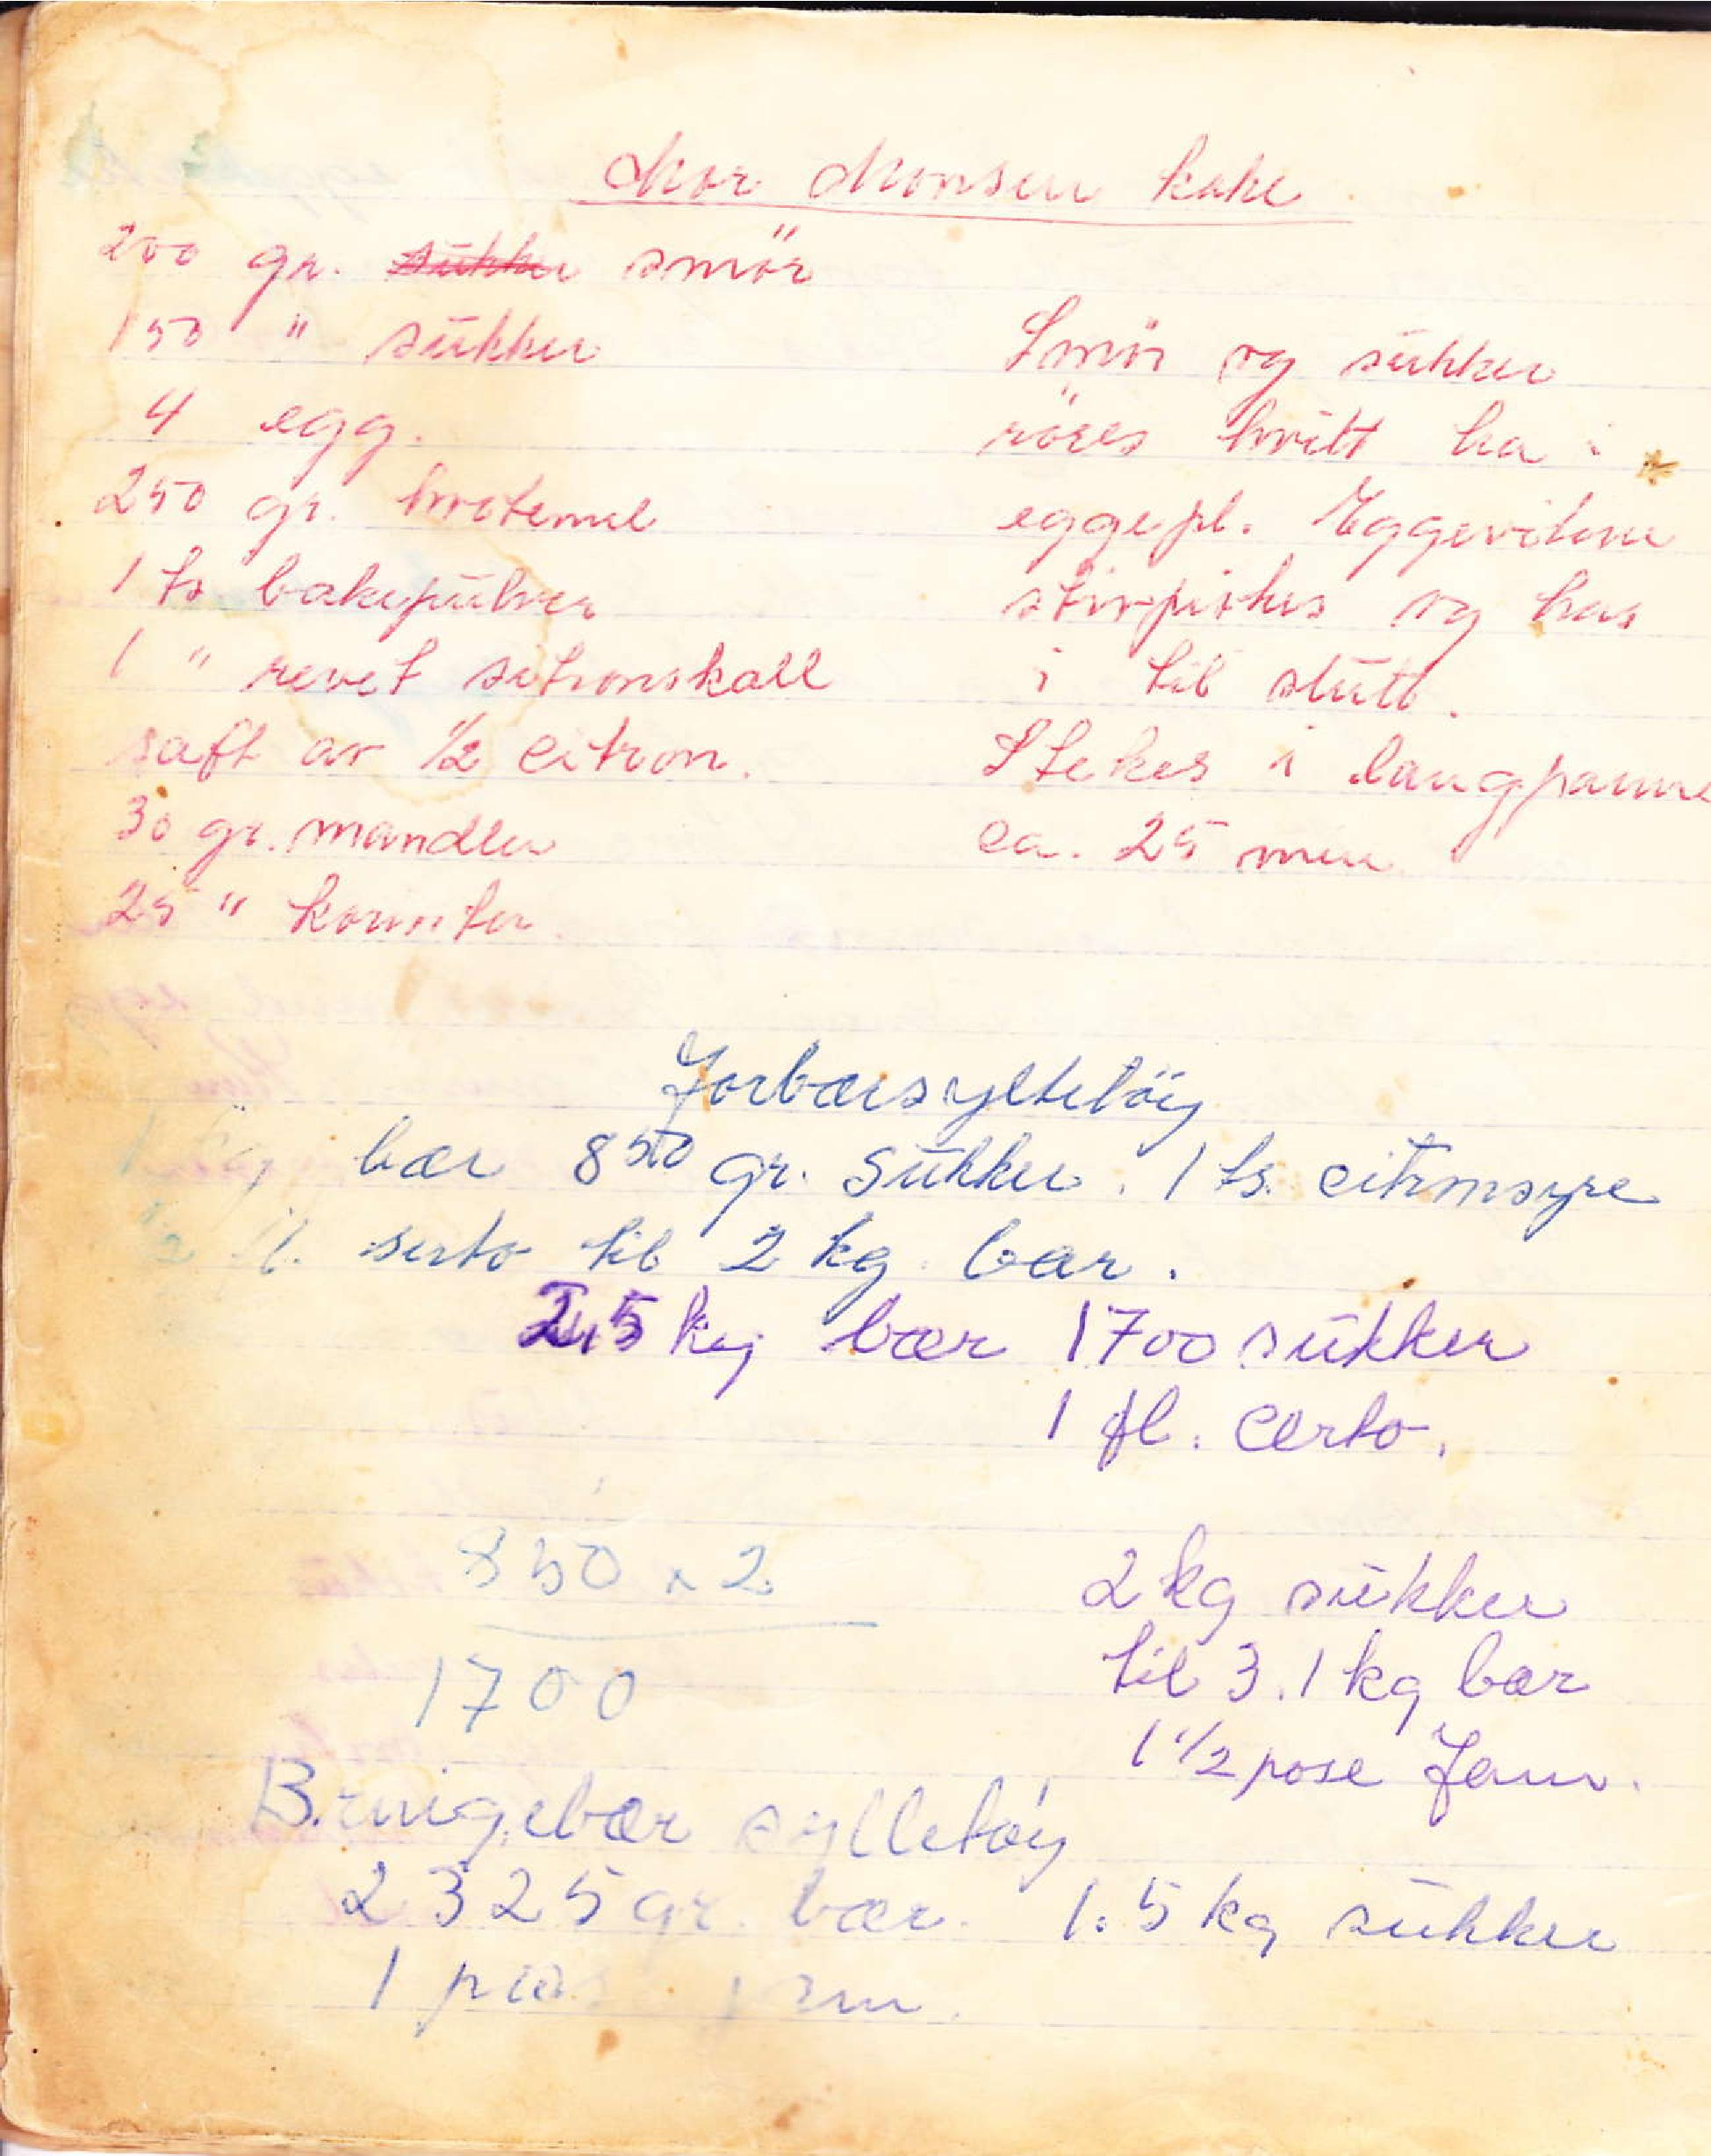 Mor Monsen kake
200 gr. sukker smör
150 " sukker
4 egg.
250 gr. hvetemel
1 ts bakepulver
1 " revet sitronskall
saft av 1/2 citron.
30 gr. mandler
25 " korinter
Smör og sukker
röres hvitt ha i
eggepl. Eggevitene
stivpiskes og has
i til slutt.
Stekes i langpanne
ca. 25 min
Jorbærsyltetöy
1 kg bær 850 gr. sukker. 1 ts. citronsyre
1/2 fl. serto til 2 kg bær.
2,5 kg bær 1700 sukker
1 fl. Certo.
850 x 2
1700
2 kg sukker
til 3.1 kg bær
1 1/2 pose Jam.
Bringebær syltetöy
2325 gr. bær. 1.5 kg sukker
1